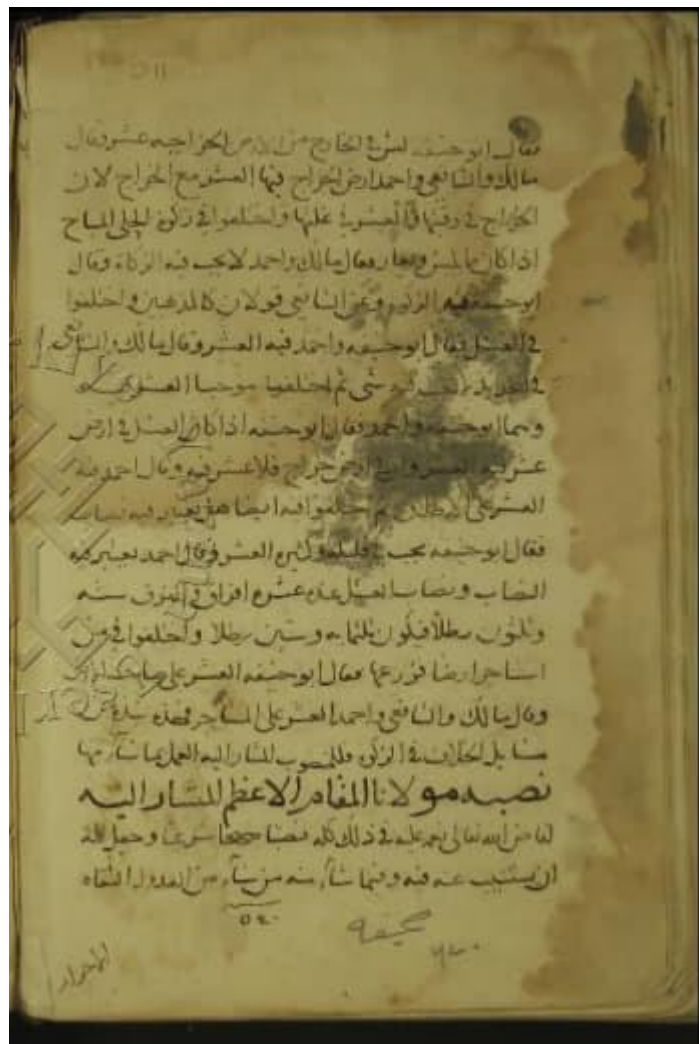 فقال ابو حنيفه ليس في الخارج من الارض الخراجيه عشر وقال
مالك والشافعي واحمد ارض الخراج فيها العشر مع الخراج لان
الخراج في رقبتها والعشر في غلتها واختلفوا في زكوة الحلي المباح
اذا كان مما يلبس ويعار فقال مالك واحمد لا يجب فيه الزكاة وقال
ابو حنيفه فيه الزكوة وعن الشافعي قولان كالمذهبين واختلفوا
في العسل فقال ابو حنيفه واحمد فيه العشر وقال مالك والشافعي
في الجديد شي ثم اختلفا موجبا العشر
وهما ابو حنيفه واحمد فقال ابو حنيفه اذا كان العسل في ارض
عشر فيه العشر وان في ارض خراج فلا عشر فيه وقال احمد فيه
العشر على الاطلاق ثم اختلفوا فيه ايضا هل يعتبر فيه نصاب
فقال ابو حنيفه يجب في قليله وكثيره العشر وقال احمد يعتبر فيه
النصاب ونصاب العسل عنده عشرة افراق والفرق سته
وثلثون رطلا فيكون ثلثمايه وستين رطلا واختلفوا في من
استاجر ارضا فزرعها فقال ابو حنيفه العشر على صاحب الارض
وقال مالك والشافعي واحمد العشر على المستاجر فهذه نبذة من
مسايل الخلاف في الزكوة وللمنصوب المشار اليه العمل بما شاء منها
نصبه مولانا المقام الاعظم المشار اليه
لما من الله تعالى به عليه في ذلك كله نصبا صحيحا شرعيا وجعل له
ان يستنيب عنه فيه وفيما شاء منه من شاء من العدول الثقاه
٥٤٠
صحيفه